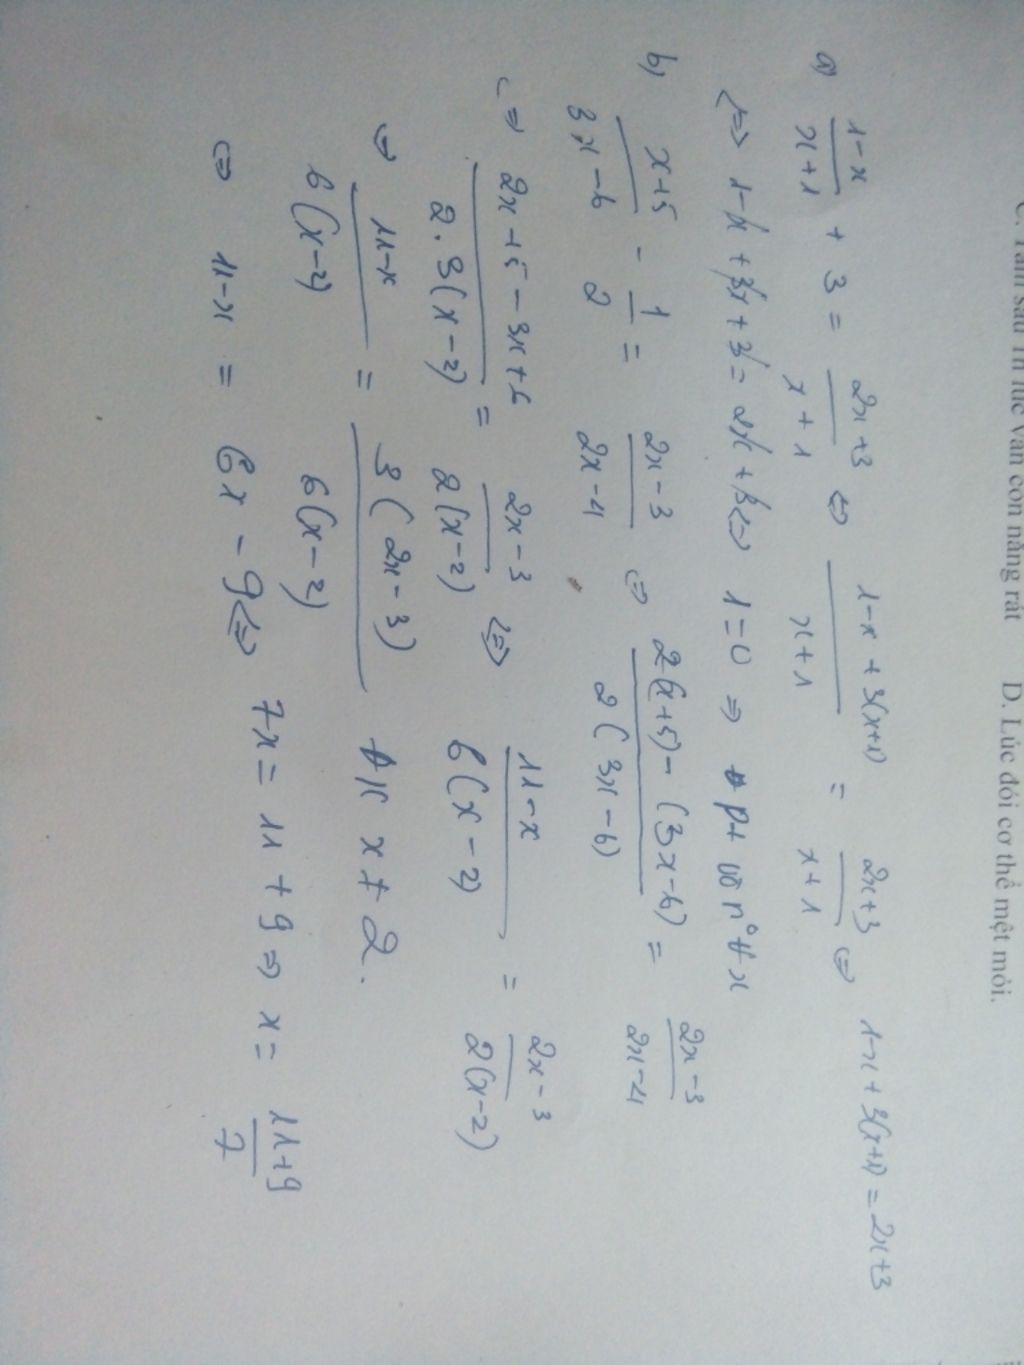 C. Tắm sau 1h lúc vẫn còn nắng rát D. Lúc đói cơ thể mệt mỏi.
a) (1-x)/(x+1) + 3 = (2x+3)/(x+1) ⇔ (1-x + 3(x+1))/(x+1) = (2x+3)/(x+1) ⇔ 1-x + 3(x+1) = 2x+3
⇔ 1-x + 3x + 3 = 2x + 3 ⇔ 1=0 ⇒ pt vô n° ∀x
b) (x+5)/(3x-6) - 1/2 = (2x-3)/(2x-4) ⇔ (2(x+5) - (3x-6))/(2(3x-6)) = (2x-3)/(2x-4)
⇔ (2x+5-3x+6)/(2.3(x-2)) = (2x-3)/(2(x-2)) ⇔ (11-x)/(6(x-2)) = (2x-3)/(2(x-2))
⇔ (11-x)/(6(x-2)) = (3(2x-3))/(6(x-2)) ĐK x ≠ 2.
⇔ 11-x = 6x-9 ⇔ 7x = 11+9 ⇒ x = (11+9)/7